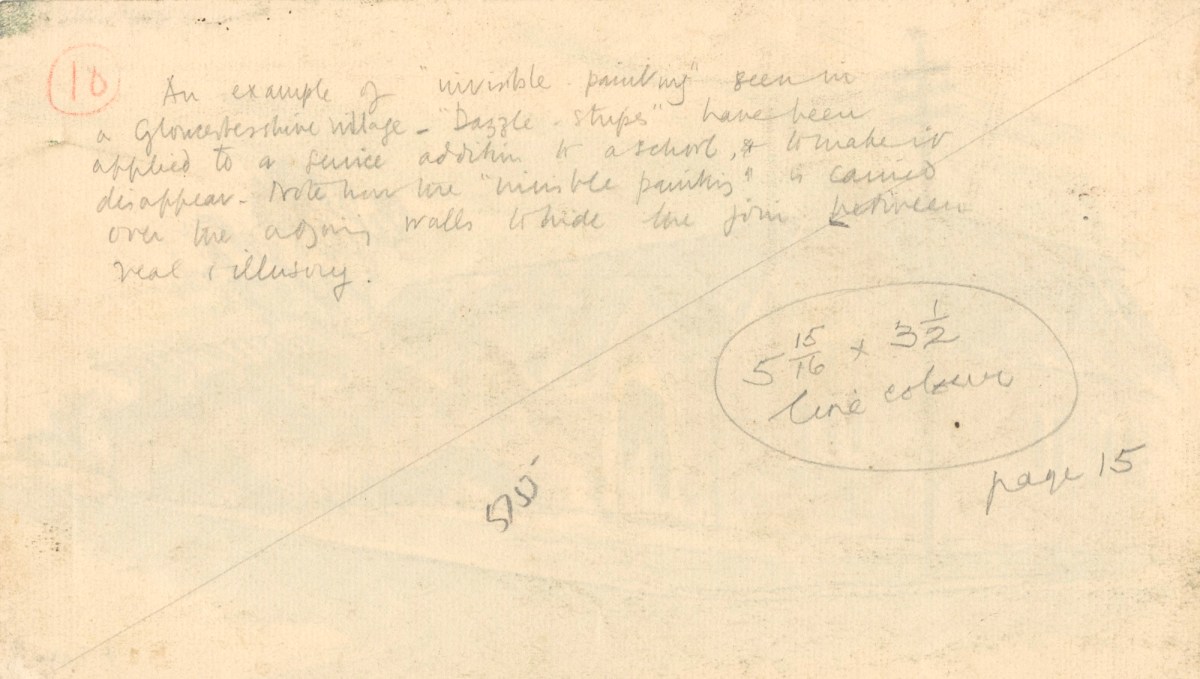 10
An example of "invisible painting" seen in
a Gloucestershire village - "Dazzle-stripes" have been
applied to a service addition to a school, & to make it
disappear. Note how the "invisible painting" is carried
over the adjoining walls to hide the join between
real & illusory.
5 15/16 x 3 1/2
line colour
page 15